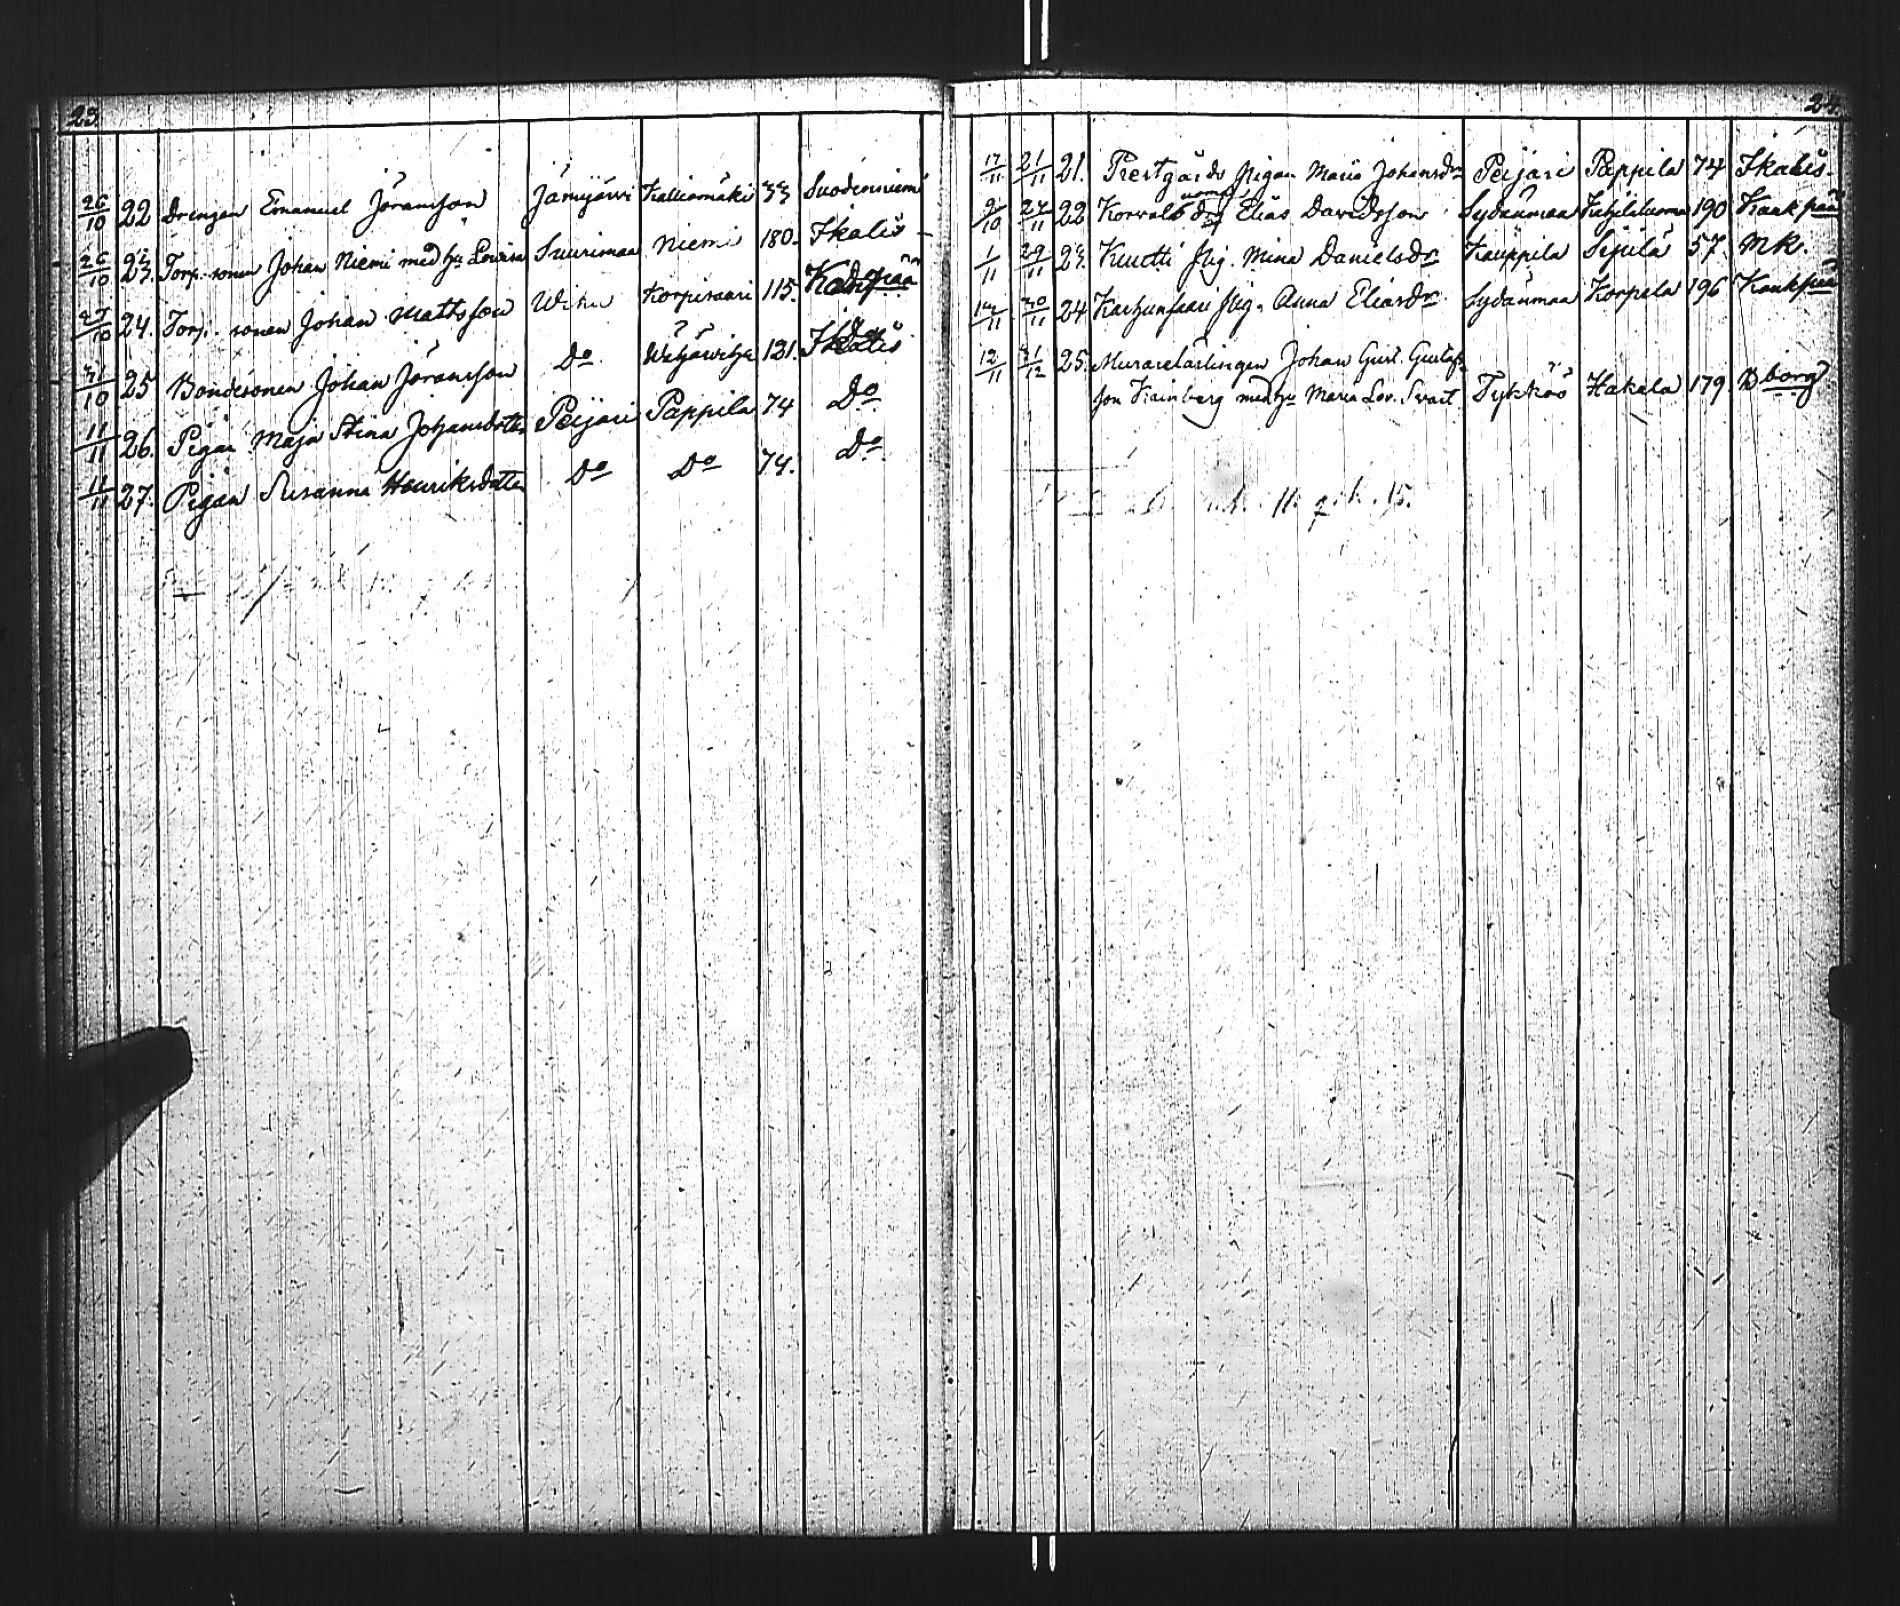 23.
26/10 22 Drengen Emanuel Jöransson Jämijärvi Kalliomäki 33 Suodenniemi
26/10 23. Torp. sonen Johan Niemi med hu Lovisa Suurimaa Niemi 180. Ikalis
27/10 24. Torp. sonen Johan Mattsson Wihu Korpisaari 115.
31/10 25 Bondesonen Johan Jöransson Do 121. Ikalis
11/11 26. Pigan Maja Stina Johansdotter Peijari Pappila 74 Do
11/11 27. Pigan Susanna Henriksdotter Do Do 74. Do
24.
17/11 21/11 21. Prestgårds pigan Maria Johansdr Peijari Pappila 74 Ikalis.
9/10 24/11 22 Elias Davidsson Sydänmaa 190 Kankpää
1/11 29/11 23. Kuutti pig. Mina Danielsdr Kauppila Sipilä 57. MK.
14/11 30/11 24 Karhunsaari pig. Anna Eliasdr Sydänmaa Korpela 196 Kankpää
12/11 31/12 25. Murarelärlingen Johan Gust. Gustafs-
son Kainberg med hu Maria Lov. Svart Tykköö Hakala 179. Bborg
11. 15.